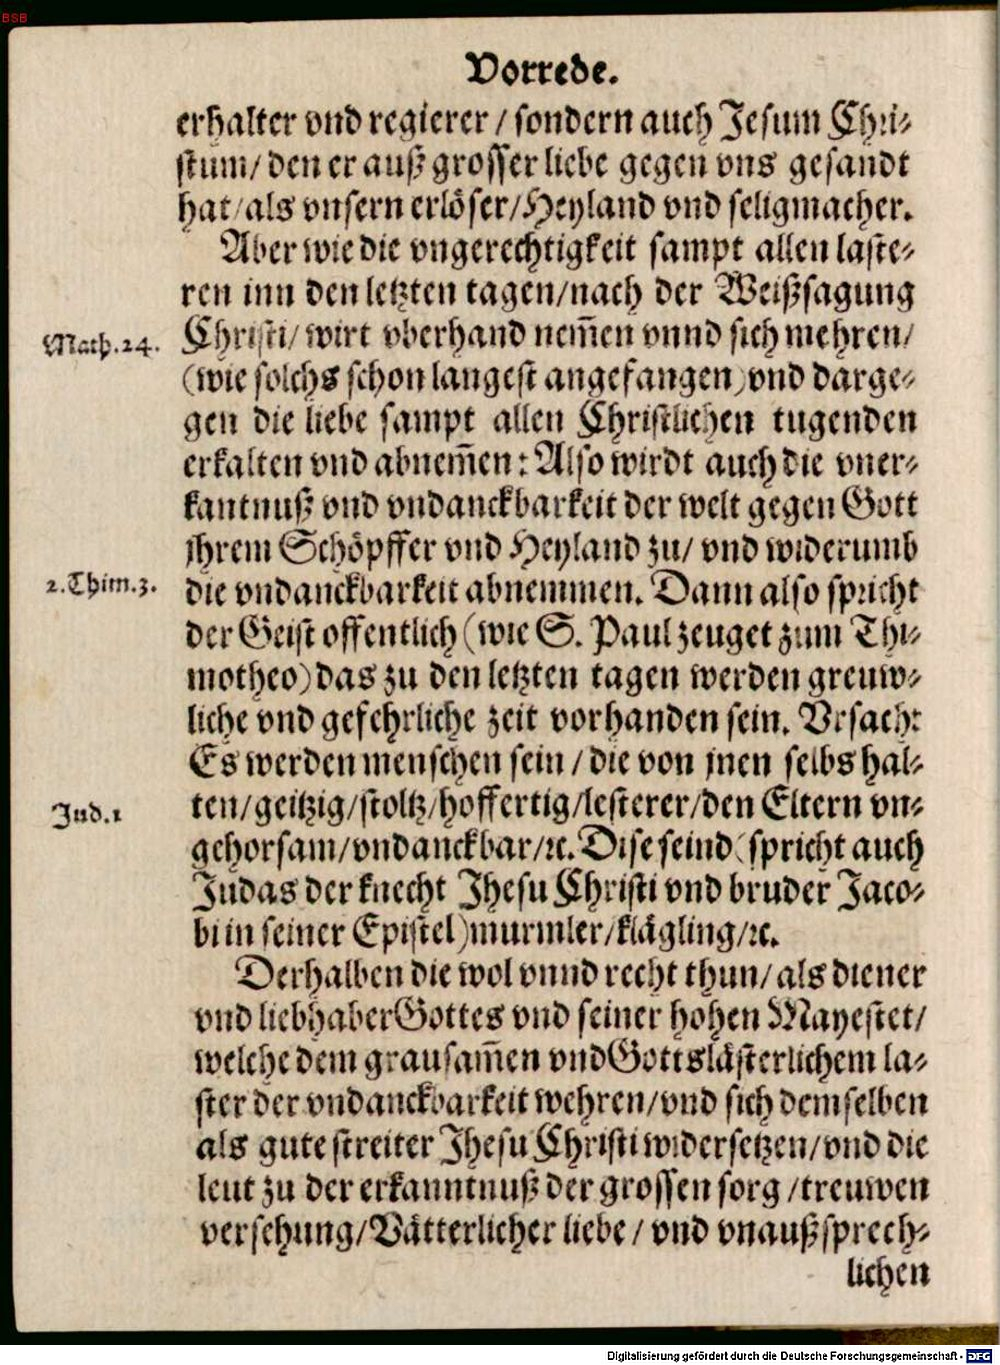 BSB
Vorrede.
erhalter vnd regierer / sondern auch Jesum Chri⸗
stum/ den er auß grosser liebe gegen vns gesandt
hat/als vnsern erlöser/Heyland vnd seligmacher.
Aber wie die vngerechtigkeit sampt allen laste⸗
ren inn den letzten tagen/nach der Weißsagung
Math.24. Christi/ wirt vberhand nem̃en vnnd sich mehren/
(wie solchs schon langest angefangen)vnd darge⸗
gen die liebe sampt allen Christlichen tugenden
erkalten vnd abnem̃en: Also wirdt auch die vner⸗
kantnuß vnd vndanckbarkeit der welt gegen Gott
jhrem Schöpffer vnd Heyland zu/ vnd widerumb
2.Thim.3. die vndanckbarkeit abnemmen. Dann also spricht
der Geist offentlich (wie S. Paul zeuget zum Thi⸗
motheo) das zu den letzten tagen werden greuw⸗
liche vnd gefehrliche zeit vorhanden sein. Vrsach:
Es werden menschen sein / die von jnen selbs hal⸗
Jud.1 ten/geitzig/stoltz/hoffertig/lesterer/den Eltern vn⸗
gehorsam/vndanckbar/ꝛc. Dise seind (spricht auch
Judas der knecht Jhesu Christi vnd bruder Jaco⸗
bi in seiner Epistel)murmler/klägling/ꝛc.
Derhalben die wol vnnd recht thun/ als diener
vnd liebhaber Gottes vnd seiner hohen Mayestet/
welche dem grausam̃en vnd Gottslästerlichem la⸗
ster der vndanckbarkeit wehren/vnd sich demselben
als gute streiter Jhesu Christi widersetzen/vnd die
leut zu der erkanntnuß der grossen sorg /treuwen
versehung/Vätterlicher liebe / vnd vnaußsprech⸗
lichen
Digitalisierung gefördert durch die Deutsche Forschungsgemeinschaft - DFG